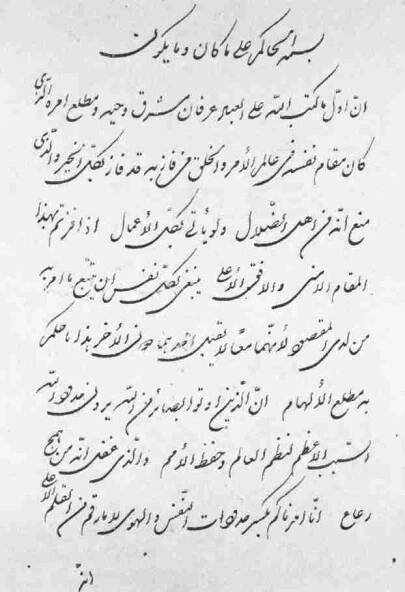 بسمه الحاكم على ما كان وما يكون
انّ اوّل ما كتب الله على العباد عرفان مشرق وحيه ومطلع امره الّذى
كان مقام نفسه فى عالم الأمر والخلق من فاز به قد فاز بكلّ الخير والّذى
منع انّه من اهل الضّلال ولو يأتى بكلّ الأعمال اذا فزتم بهذا
المقام الاسنى والافق الأعلى ينبغى لكلّ نفس ان يتّبع ما امر به
من لدى المقصود لأنّهما معًا لا يقبل احدهما دون الأخر هذا ما حكم
به مطلع الألهام انّ الّذين اوتوا بصائر من الله يرون حدود الله
السّبب الأعظم لنظم العالم وحفظ الأمم والّذى غفل انّه من همج
رعاع انّا امرناكم بكسر حدودات النّفس والهوى لا ما رقم من القلم الأعلى
انّه